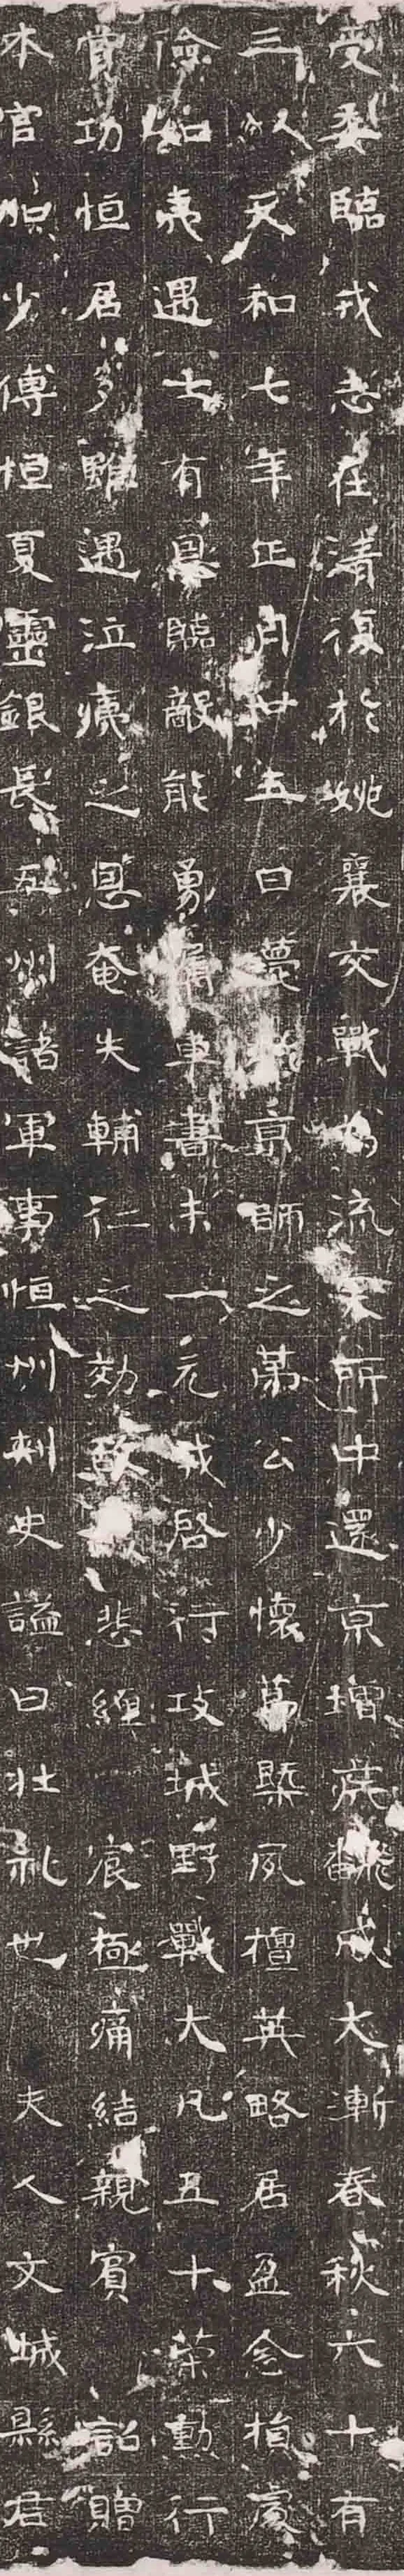 受委臨戎志在清復於姚襄交戰為流矢所中還京增疣翻成大漸春秋六十有
三以天和七年正月廿五日薨於京師之第公少懷萬槩夙檀英略居盈念損處
儉如夷遇士有恩臨敵能勇屬車書未一元戎啓行攻城野戰大凡五十榮勳行
賞功恒居多雖遇泣痍之恩奄失輔仁之効故悲纏宸極痛結親賓詔贈
本官加少傅恒夏靈銀長五州諸軍事恒州刺史謚曰壯礼也夫人文城縣君